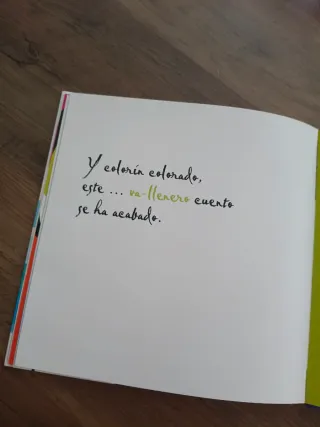 Y colorín colorado,
este ... va-llenero cuento
se ha acabado.